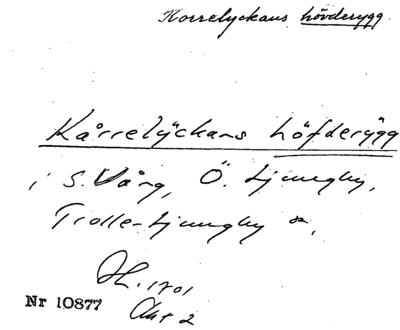 Korrelyckans hövderygg
Kårrelÿckans höfderÿgg
i S. Vång, Ö. Ljungby,
Trolle-Ljungby
1701
Nr 10877
Akt 2